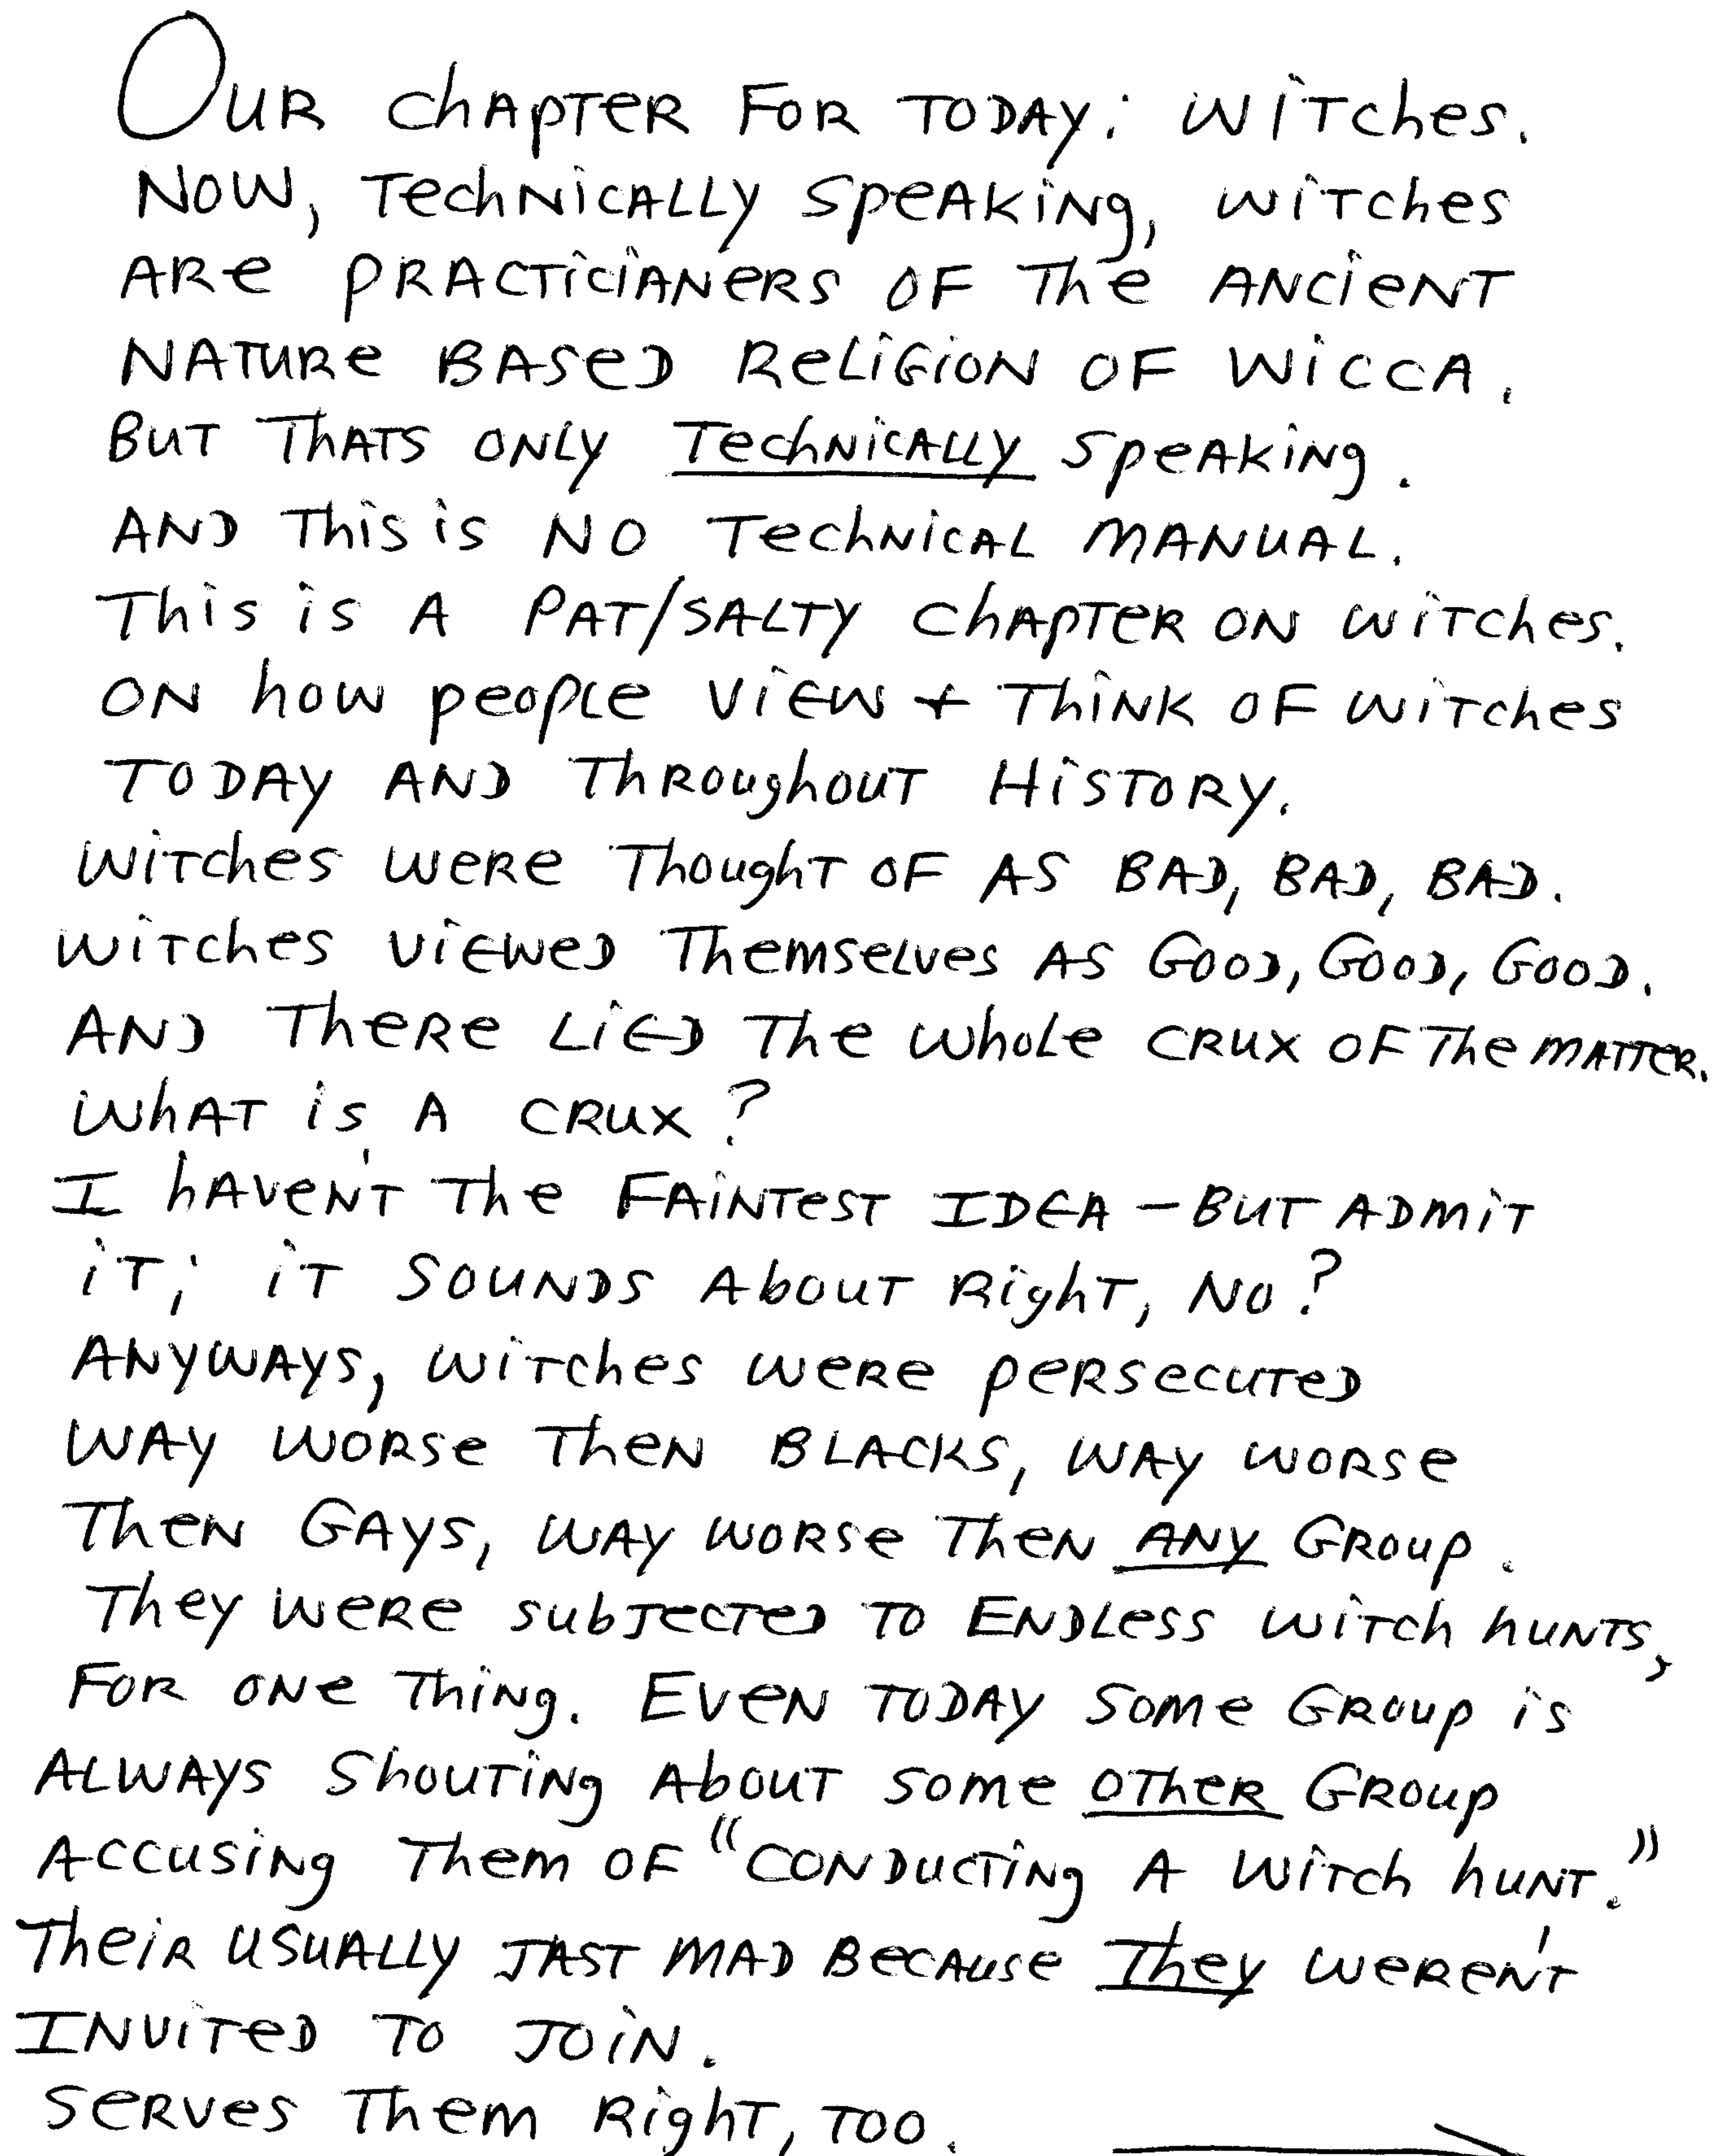 Our chapter for today: witches.
Now, technically speaking, witches
are practicianers of the ancient
nature based religion of wicca.
But thats only technically speaking.
And this is no technical manual.
This is a Pat/Salty chapter on witches.
On how people view + think of witches
today and throughout history.
Witches were thought of as bad, bad, bad.
Witches viewed themselves as good, good, good.
And there lied the whole crux of the matter.
What is a crux?
I haven't the faintest idea - but admit
it; it sounds about right, no?
Anyways, witches were persecuted
way worse then blacks, way worse
then gays, way worse then any group.
They were subjected to endless witch hunts,
for one thing. Even today some group is
always shouting about some other group
accusing them of "conducting a witch hunt."
Their usually jast mad because they weren't
invited to join.
Serves them right, too.